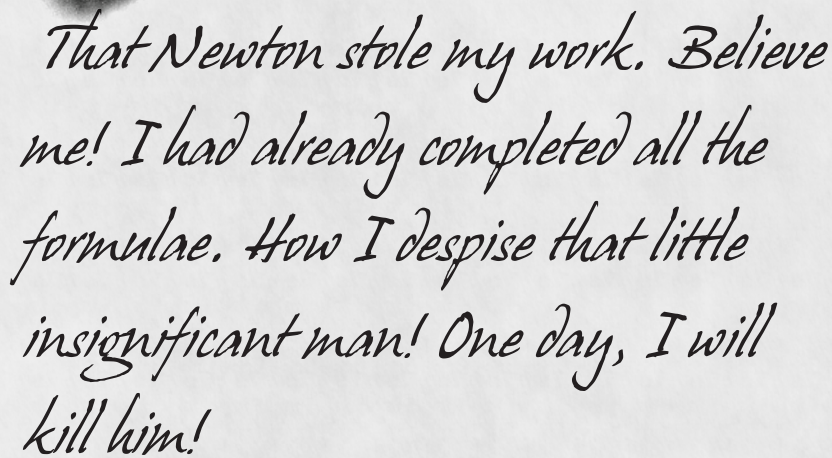 That Newton stole my work. Believe
me! I had already completed all the
formulae. How I despise that little
insignificant man! One day, I will
kill him!